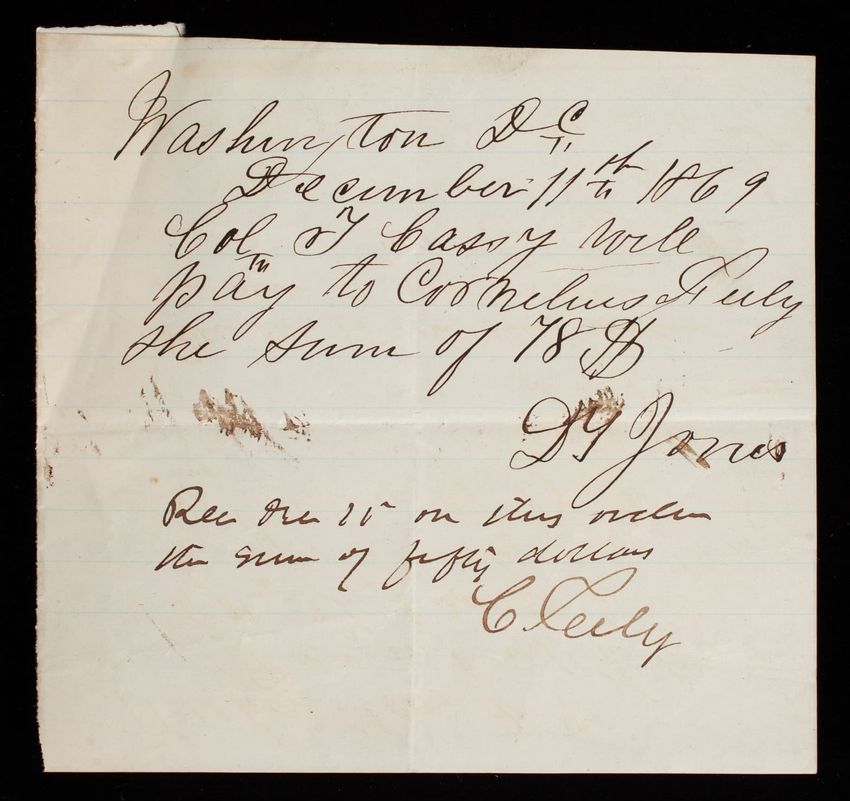 Washington D C
December 11th 1869
Col T Cassy will
pay to Cornelius Feely
the sum of 78 $
D Y Jones
Rec Dec 15 on this order
the sum of fifty dollars
C Feely